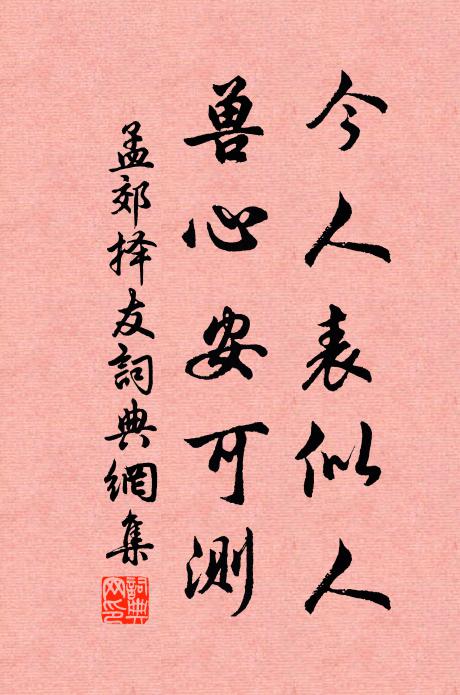 今人表似人
兽心安可测
孟郊择友詞典網集
詞典
网印